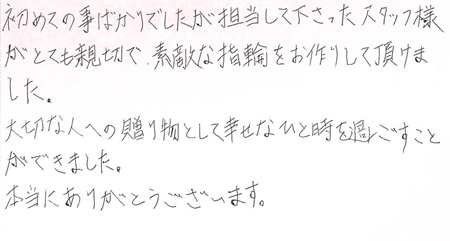 初めての事ばかりでしたが担当して下さったスタッフ様
がとても親切で、素敵な指輪をお作りして頂けま
した。
大切な人への贈り物として幸せなひと時を過ごすこと
ができました。
本当にありがとうございます。